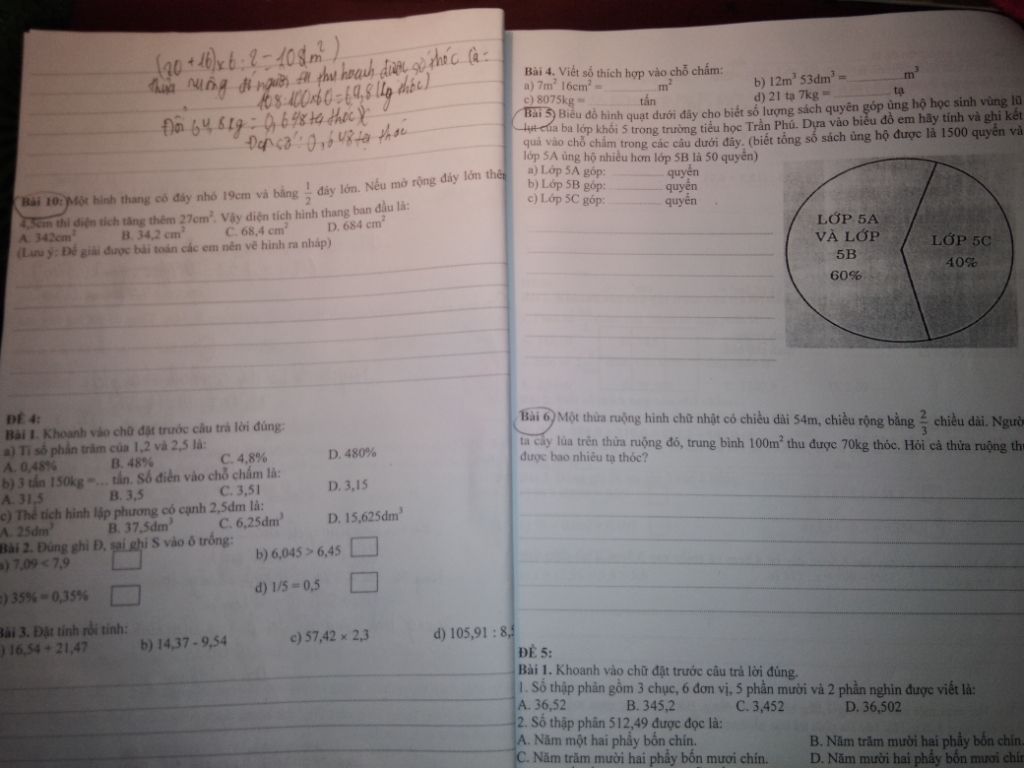 (20 + 16) x 6 : 2 = 108 m²)
thửa ruộng đó người ta thu hoạch được số thóc là:
108 : 100 x 60 = 64,8 (kg thóc)
Đổi 64,8 kg = 0,648 tạ thóc
Đáp số: 0,648 tạ thóc
Bài 10: Một hình thang có đáy nhỏ 19cm và bằng 1/2 đáy lớn. Nếu mở rộng đáy lớn thêm
4,5cm thì diện tích tăng thêm 27cm². Vậy diện tích hình thang ban đầu là:
A. 342cm² B. 34,2 cm² C. 68,4 cm² D. 684 cm²
(Lưu ý: Để giải được bài toán các em nên vẽ hình ra nháp)
ĐỀ 4:
Bài 1. Khoanh vào chữ đặt trước câu trả lời đúng:
a) Tỉ số phần trăm của 1,2 và 2,5 là:
A. 0,48% B. 48% C. 4,8% D. 480%
b) 3 tấn 150kg =... tấn. Số điền vào chỗ chấm là:
A. 31,5 B. 3,5 C. 3,51 D. 3,15
c) Thể tích hình lập phương có cạnh 2,5dm là:
A. 25dm³ B. 37,5dm³ C. 6,25dm³ D. 15,625dm³
Bài 2. Đúng ghi Đ, sai ghi S vào ô trống:
a) 7,09 < 7,9 b) 6,045 > 6,45
c) 35% = 0,35% d) 1/5 = 0,5
Bài 3. Đặt tính rồi tính:
a) 16,54 + 21,47 b) 14,37 - 9,54 c) 57,42 × 2,3 d) 105,91 : 8,5
Bài 4. Viết số thích hợp vào chỗ chấm:
a) 7m² 16cm² = ________ m² b) 12m³ 53dm³ = ________ m³
c) 8075kg = ________ tấn d) 21 tạ 7kg = ________ tạ
Bài 5) Biểu đồ hình quạt dưới đây cho biết số lượng sách quyên góp ủng hộ học sinh vùng lũ
lụt của ba lớp khối 5 trong trường tiểu học Trần Phú. Dựa vào biểu đồ em hãy tính và ghi kết
quả vào chỗ chấm trong các câu dưới đây. (biết tổng số sách ủng hộ được là 1500 quyển và
lớp 5A ủng hộ nhiều hơn lớp 5B là 50 quyển)
a) Lớp 5A góp: ________ quyển
b) Lớp 5B góp: ________ quyển
c) Lớp 5C góp: ________ quyển
LỚP 5A
VÀ LỚP
5B
60%
LỚP 5C
40%
Bài 6) Một thửa ruộng hình chữ nhật có chiều dài 54m, chiều rộng bằng 2/3 chiều dài. Người
ta cấy lúa trên thửa ruộng đó, trung bình 100m² thu được 70kg thóc. Hỏi cả thửa ruộng thu
được bao nhiêu tạ thóc?
ĐỀ 5:
Bài 1. Khoanh vào chữ đặt trước câu trả lời đúng.
1. Số thập phân gồm 3 chục, 6 đơn vị, 5 phần mười và 2 phần nghìn được viết là:
A. 36,52 B. 345,2 C. 3,452 D. 36,502
2. Số thập phân 512,49 được đọc là:
A. Năm một hai phẩy bốn chín. B. Năm trăm mười hai phẩy bốn chín.
C. Năm trăm mười hai phẩy bốn mươi chín. D. Năm mười hai phẩy bốn mươi chín